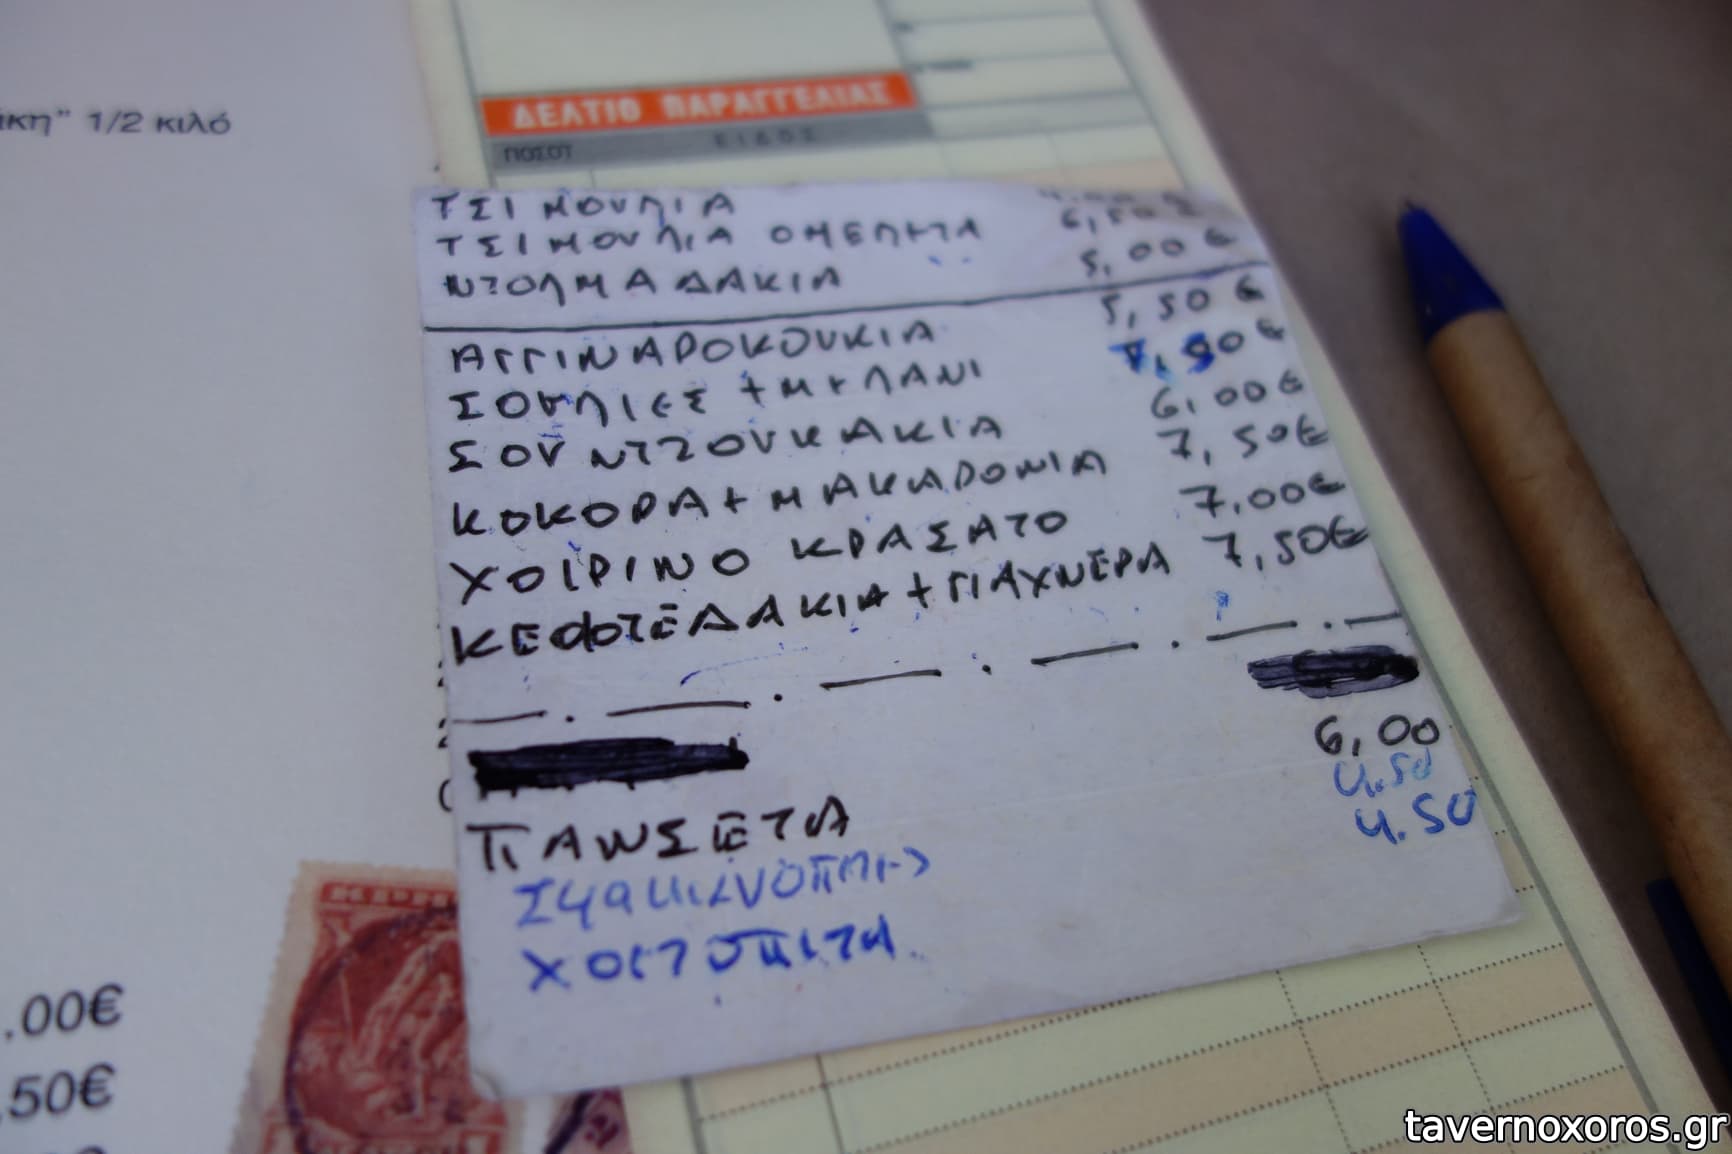 άκη” 1/2 κιλό
ΔΕΛΤΙΟ ΠΑΡΑΓΓΕΛΙΑΣ
ΠΟΣΟΤ ΕΙΔΟΣ
ΤΣΙΜΟΥΛΙΑ 4,00 €
ΤΣΙΜΟΥΛΙΑ ΟΜΕΛΕΤΑ 6,50 €
ΝΤΟΛΜΑΔΑΚΙΑ 5,00 €
ΑΓΓΙΝΑΡΟΚΟΥΚΙΑ 5,50 €
ΣΟΥΠΙΕΣ + ΜΕΛΑΝΙ
ΣΟΥΝΤΖΟΥΚΑΚΙΑ 6,00 €
ΚΟΚΟΡΑ + ΜΑΚΑΡΟΝΙΑ 7,50€
ΧΟΙΡΙΝΟ ΚΡΑΣΑΤΟ 7,00€
ΚΕΦΤΕΔΑΚΙΑ + ΓΙΑΧΝΕΡΑ 7,50€
ΠΑΝΣΕΤΑ 6,00
4.50
ΧΟΡΤΟΠΙΤΑ 4.50
.00€
.50€
ΚΡΗΤ
tavernoxoros.gr